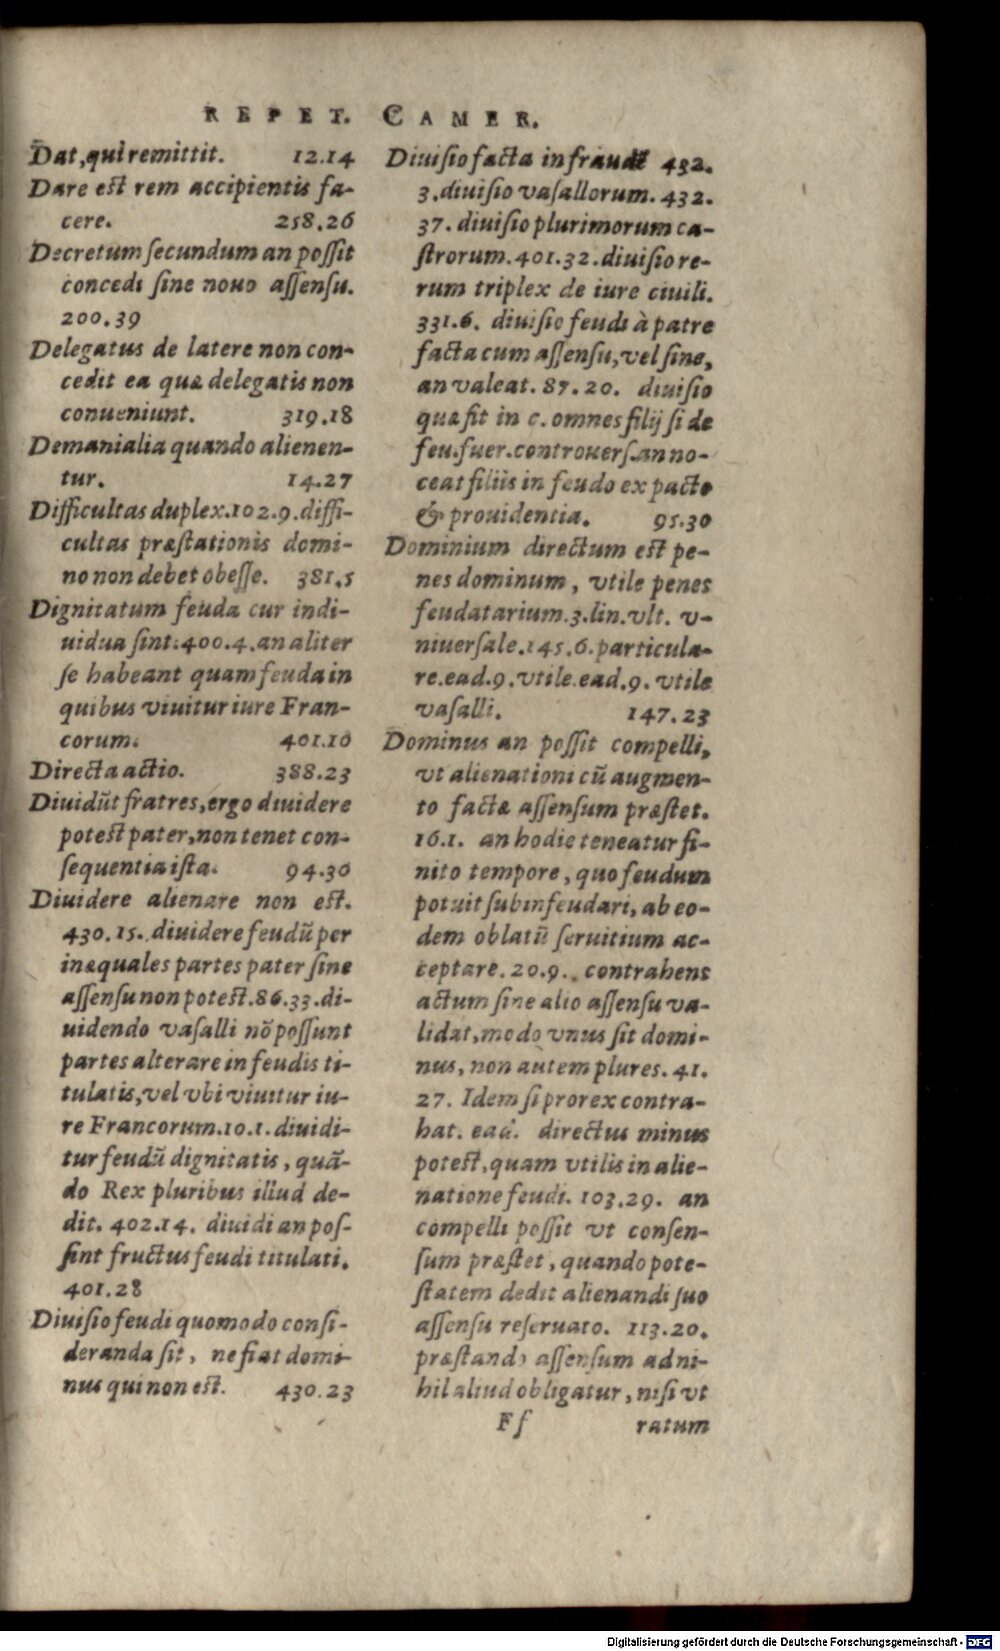 REPET. CAMER.
Dat, qui remittit. 12.14
Dare est rem accipientis fa-
cere. 258.26
Decretum secundum an possit
concedi sine nouo assensu.
200.39
Delegatus de latere non con-
cedit ea quæ delegatis non
conueniunt. 319.18
Demanialia quando alienen-
tur. 14.27
Difficultas duplex.102.9.diffi-
cultas præstationis domi-
no non debet obesse. 381.5
Dignitatum feuda cur indi-
uidua sint:400.4.an aliter
se habeant quam feuda in
quibus viuitur iure Fran-
corum. 401.10
Directa actio. 388.23
Diuidūt fratres, ergo diuidere
potest pater, non tenet con-
sequentia ista. 94.30
Diuidere alienare non est.
430.15. diuidere feudū per
inæquales partes pater sine
assensu non potest.86.33.di-
uidendo vasalli nō possunt
partes alterare in feudis ti-
tulatis, vel vbi viuitur iu-
re Francorum.10.1. diuidi-
tur feudū dignitatis, quā-
do Rex pluribus illud de-
dit. 402.14. diuidi an pos-
sint fructus feudi titulati.
401.28
Diuisio feudi quomodo consi-
deranda sit, ne fiat domi-
nus qui non est. 430.23
Diuisio facta in fraudē 432.
3.diuisio vasallorum.432.
37. diuisio plurimorum ca-
strorum.401.32.diuisio re-
rum triplex de iure ciuili.
331.6. diuisio feudi à patre
facta cum assensu, vel sine,
an valeat. 87.20. diuisio
quæ fit in c. omnes filij si de
feu.fuer.controuers.an no-
ceat filiis in feudo ex pacto
& prouidentia. 95.30
Dominium directum est pe-
nes dominum, vtile penes
feudatarium.3.lin.vlt. v-
niuersale.145.6.particula-
re.ead.9.vtile.ead.9. vtile
vasalli. 147.23
Dominus an possit compelli,
vt alienationi cū augmen-
to factæ assensum præstet.
16.1. an hodie teneatur fi-
nito tempore, quo feudum
potuit subinfeudari, ab eo-
dem oblatū seruitium ac-
ceptare. 20.9. contrahens
actum sine alio assensu va-
lidat, modo vnus sit domi-
nus, non autem plures. 41.
27. Idem si prorex contra-
hat. ead. directus minus
potest, quam vtilis in alie-
natione feudi. 103.29. an
compelli possit vt consen-
sum præstet, quando pote-
statem dedit alienandi suo
assensu reseruato. 113.20.
præstando assensum ad ni-
hil aliud obligatur, nisi vt
Ff ratum
Digitalisierung gefördert durch die Deutsche Forschungsgemeinschaft - DFG